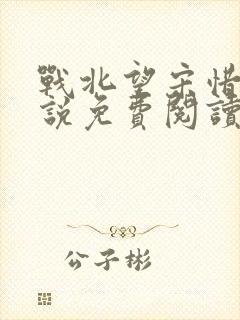 戰北望宋惜
說免費閱讀
公子彬